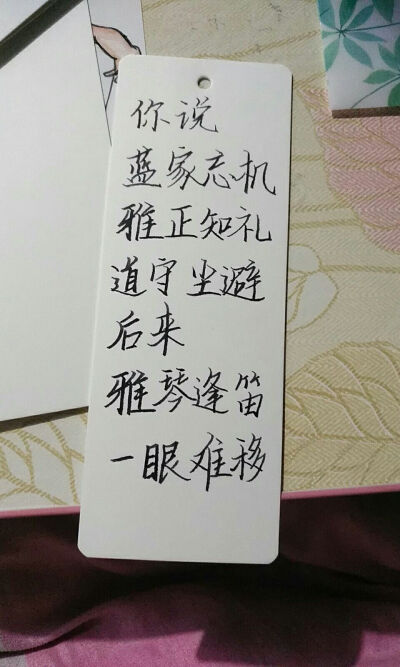 你说
蓝家忘机
雅正知礼
道守尘避
后来
雅琴逢笛
一眼难移